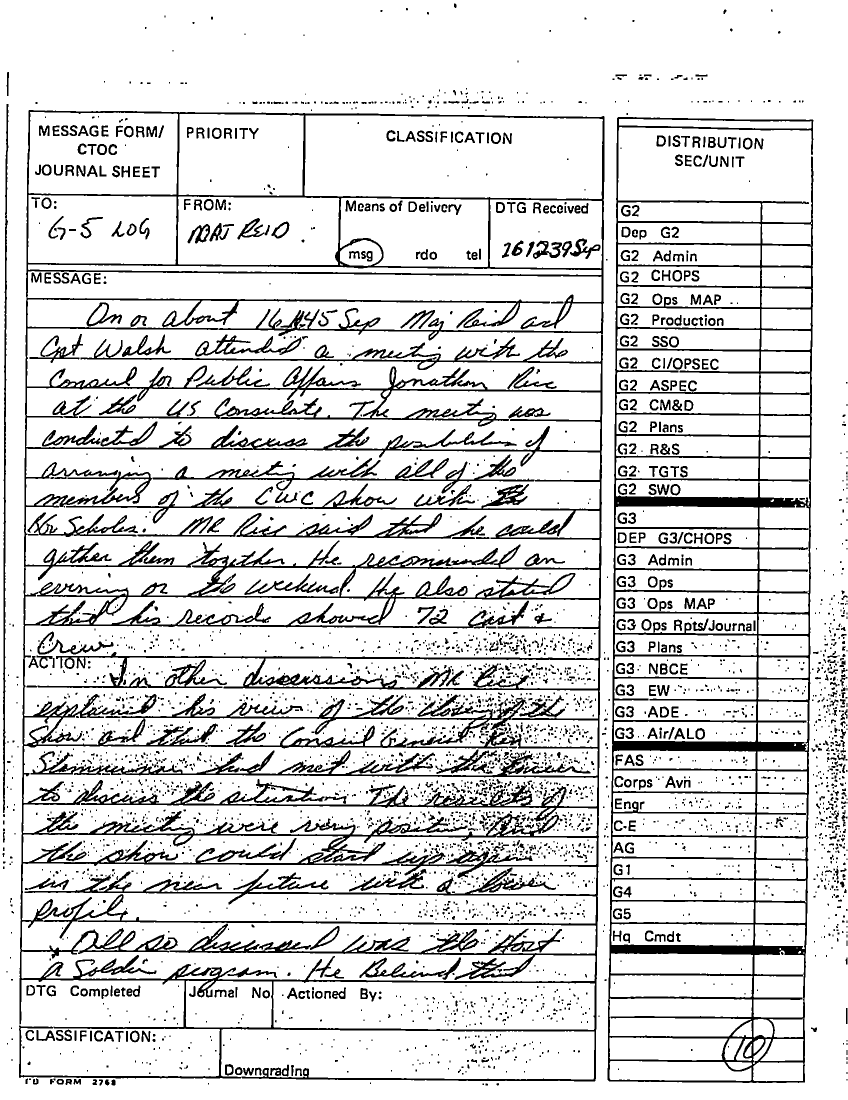 MESSAGE FORM/
CTOC
JOURNAL SHEET
PRIORITY
CLASSIFICATION
TO:
G-5 LOG
FROM:
MAJ REID
Means of Delivery
msg rdo tel
DTG Received
161239Sep
MESSAGE:
On or about 161145 Sep Maj Reid and
Cpt Walsh attended a meeting with the
Consul for Public Affairs Jonathon Rice
at the US Consulate. The meeting was
conducted to discuss the posibilities of
arranging a meeting with all of the
members of the CWC show with
Scholes. MR Rice said that he could
gather them together. He recomended an
evening or the weekend. He also stated
that his records showed 72 Cast &
Crew.
ACTION:
In other discussions MR Rice
explained his view of the closing of the
Show and that the Consul General
had met with the
to discuss the situation. The results of
the meeting were very positive, and
the show could start up again
in the near future with a lower
profile.
All so discussed was the Host
a Soldier program. He Believed that
DTG Completed
Journal No.
Actioned By:
CLASSIFICATION:
Downgrading
FORM 2768
DISTRIBUTION
SEC/UNIT
G2
Dep G2
G2 Admin
G2 CHOPS
G2 Ops MAP
G2 Production
G2 SSO
G2 CI/OPSEC
G2 ASPEC
G2 CM&D
G2 Plans
G2 R&S
G2 TGTS
G2 SWO
G3
DEP G3/CHOPS
G3 Admin
G3 Ops
G3 Ops MAP
G3 Ops Rpts/Journal
G3 Plans
G3 NBCE
G3 EW
G3 ADE
G3 Air/ALO
FAS
Corps Avn
Engr
C-E
AG
G1
G4
G5
Hq Cmdt
10